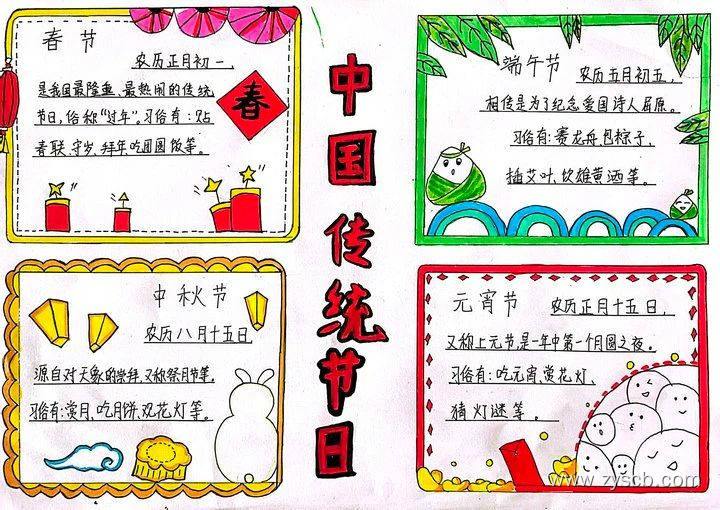 春节
农历正月初一,
是我国最隆重、最热闹的传统
节日,俗称"过年"。习俗有:贴
春联、守岁、拜年、吃团圆饭等。
春
中国传统节日
端午节
农历五月初五,
相传是为了纪念爱国诗人屈原。
习俗有:赛龙舟、包粽子,
插艾叶、饮雄黄酒等。
中秋节
农历八月十五日,
源自对天象的崇拜,又称祭月节等。
习俗有:赏月、吃月饼、观花灯等。
元宵节
农历正月十五日,
又称上元节,是一年中第一个月圆之夜。
习俗有:吃元宵、赏花灯、
猜灯谜等。
www.zyscb.com